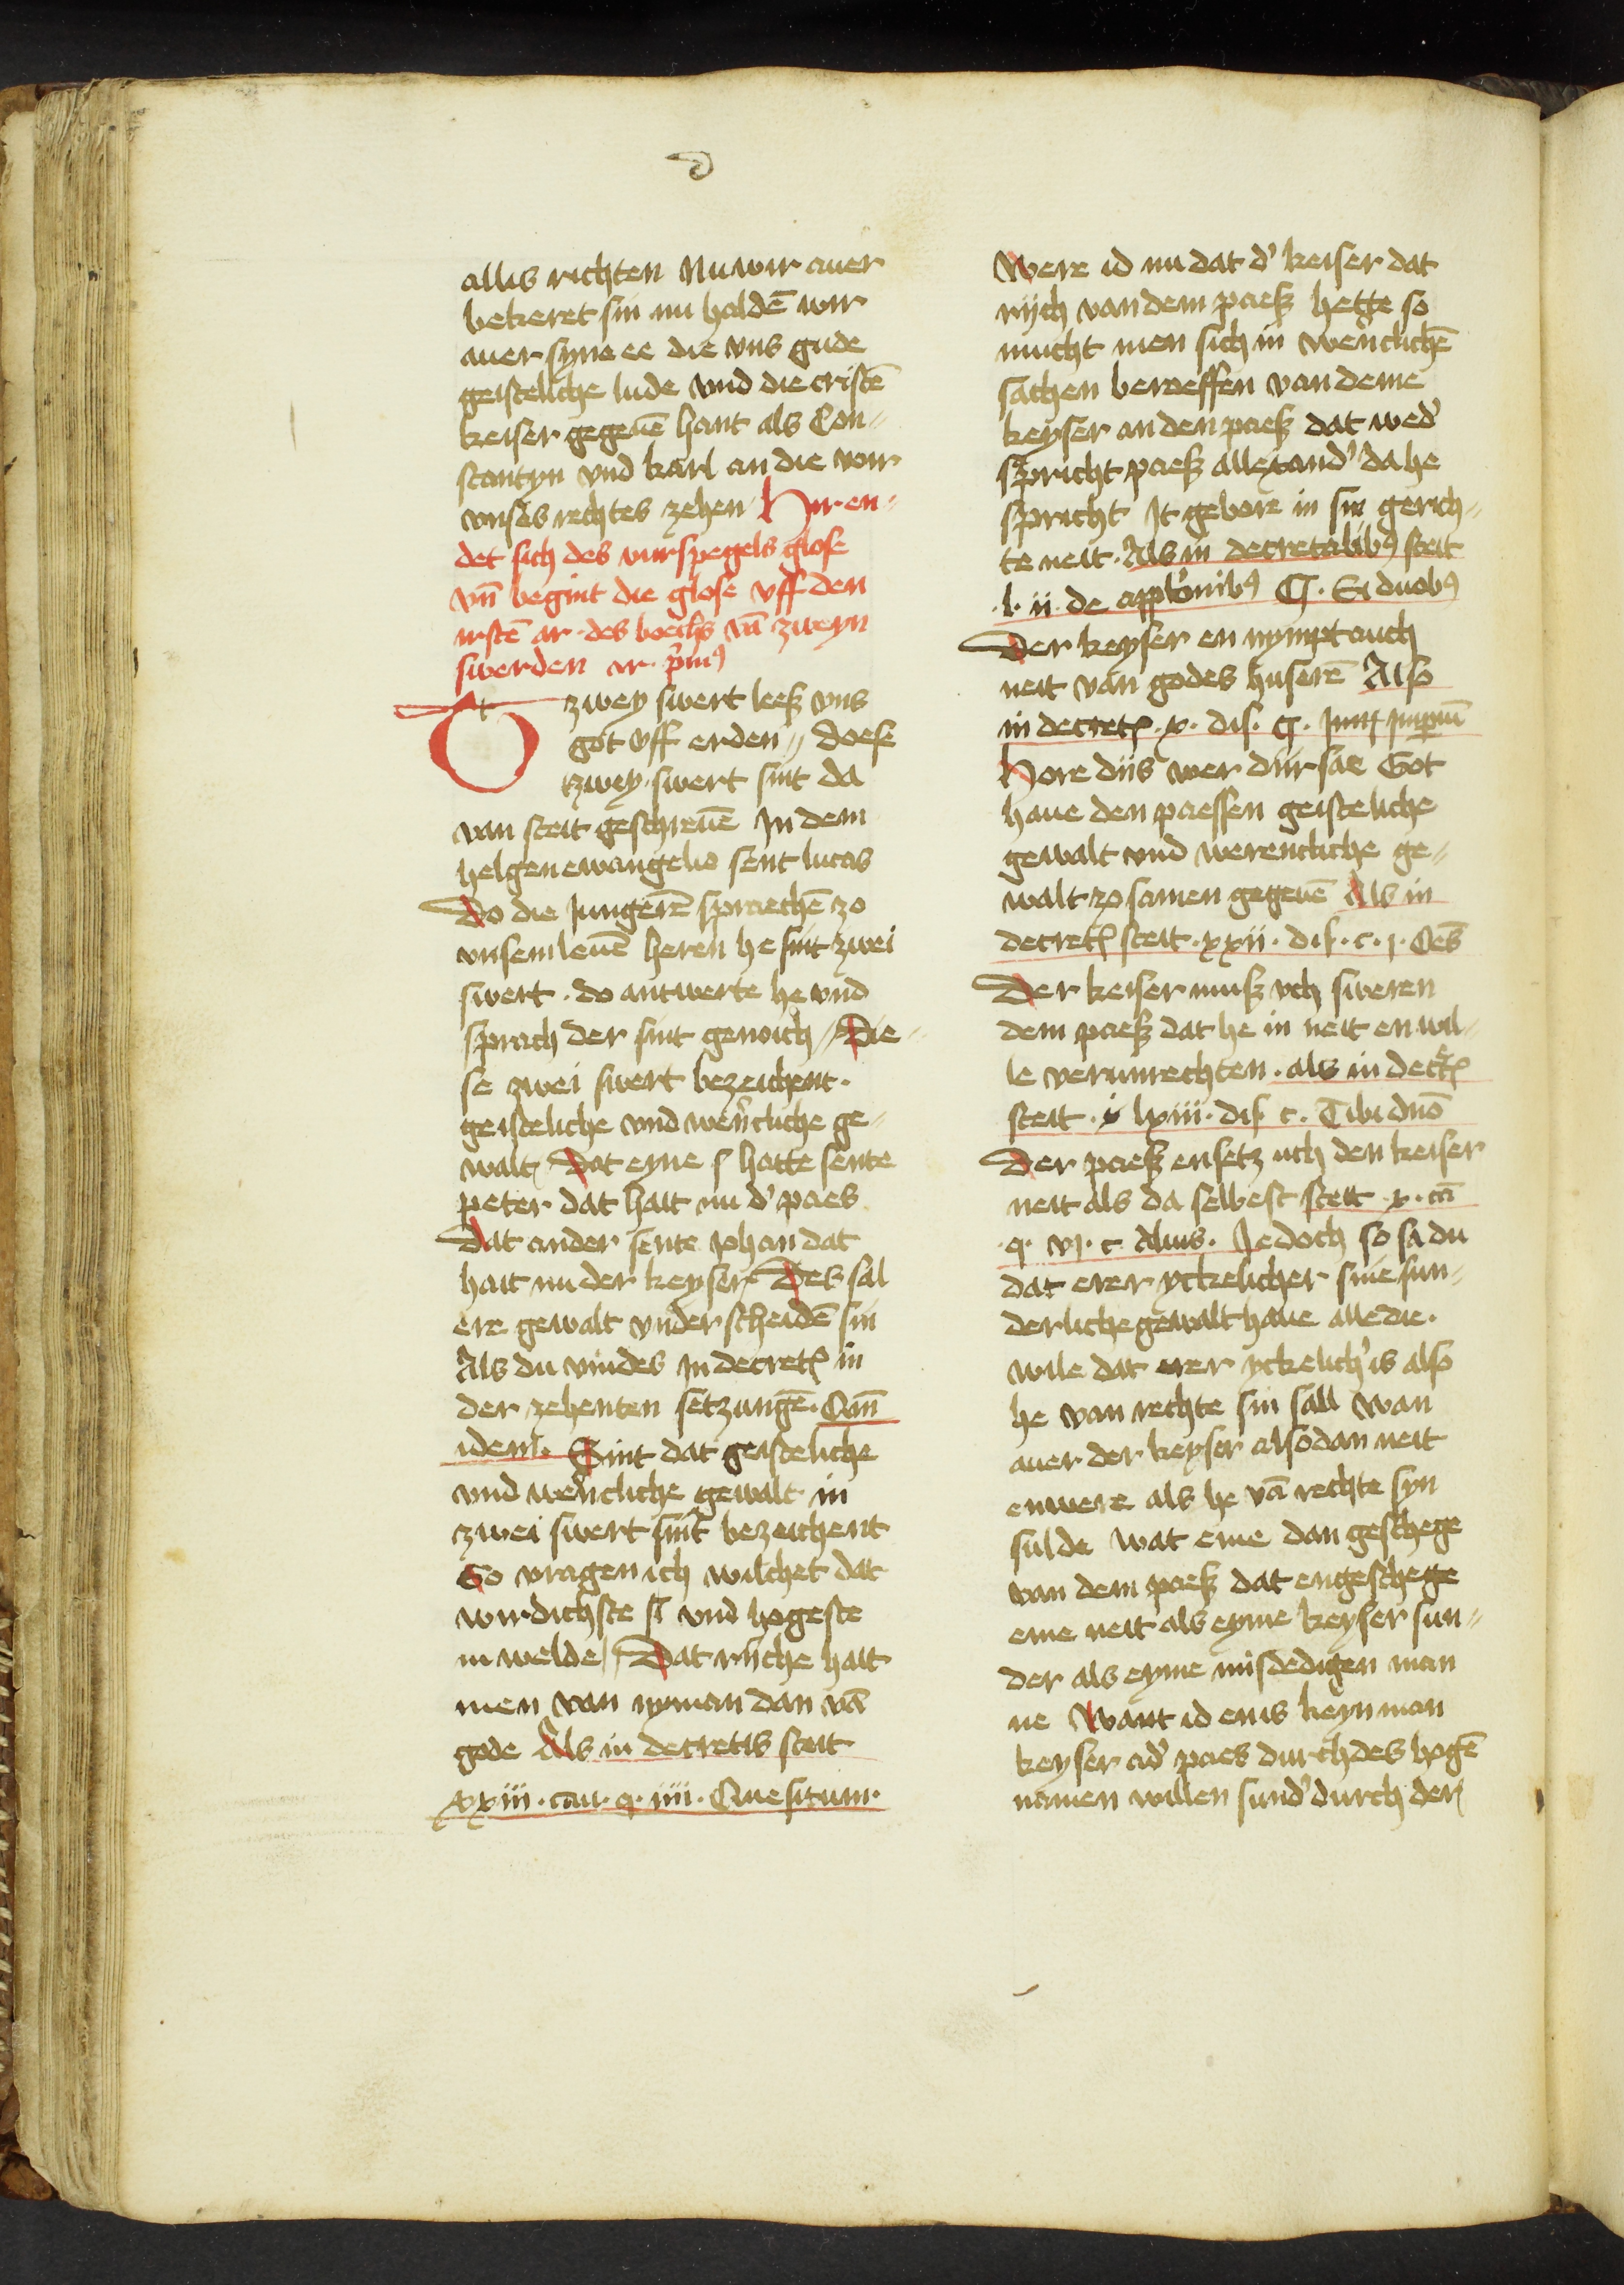 allis richten Nu wir auer
bekeret sin nu haldē wir
auer syne ee die vns gude
geisteliche lude vnd die cristē
keiser gegeuē hant als Con„
stantyn vnd karl an die wir
vnses rechtes zehen Hir en„
det sich des vurspegels glose
vn̄ begint die glose vff den
irstē ar. des boeichs vā zweyn
swerden ar. p̄mꝰ
zwey swert leesz vns
got vff erden „ doese
tzwey swert sint da
van steit geschreuē In dem
helgen ewangelio sent lucas
Do die Jungerē spraechē zo
vnsem leuē heren he sint zwei
swert . do antwerte he vnd
sprach der sint genoich / Die„
se zwei swert bezeichent .
geisteliche vnd wer̄tliche ge„
walt Dat eyne s hatte sente
peter dat hait nu d' paes
Dat ander sente Johan dat
hait nu der keyser Des sal
ere gewalt vnder scheidē sin
Als du vindes In decret in
der zehenten setzungē. Can̄
idem . Sint dat geisteliche
vnd wer̄tliche gewalt in
zwei swert sint bezeichent
So vragen ich wilchet dat
wirdichste si vnd hogeste
in welde / Dat riiche hait
men van nyman dan vā
gode Als in decretis steit
xxiii . cau. q. iiii . Quesitum .
Were id nu dat d' keiser dat
riich van dem paesz hette so
mucht men sich in wer̄tlichē
sachen beroeffen van deme
keyser an den paesz dat wed'
spricht paesz allexand' da he
spricht It gebore in sin gerich„
te neit . Als in decretalibꝰ steit
.l. ii . de appł'onibꝰ C. Si duobꝰ
Der keyser en nympt auch
neit van godes huserē Also
in decret . x . dis . C . Imperiū
Hore diis wer dir sae Got
haue den paessen geisteliche
gewalt vnd werentliche ge„
walt zo samen gegeuē Als in
decret steit . xxii . dis . c . i . Oēs
Der keiser musz vch sweren
dem paesz dat he in neit en wil„
le verunrechten . als in decret
steit . i lxiii . dis c . Tibi dn̄o
Der paesz ensetz uch den keiser
neit als da selbest steit x . cā
.q . vj . c Alius . Jedoch so sa du
dat erer yckelicher sine sun„
derliche gewalt haue alle die .
wile dat erer yckelich' is also
he van rechte sin sall wan
auer der keyser also dan neit
enwere als he vā rechte syn
sulde wat eme dan geschege
van dem paesz dat engeschege
eme neit als eyme keyser sun„
der als eyme misdedigen man
ne Want id enis keyn man
keyser ad' paes durch des hogē
namen willen sund' durch der